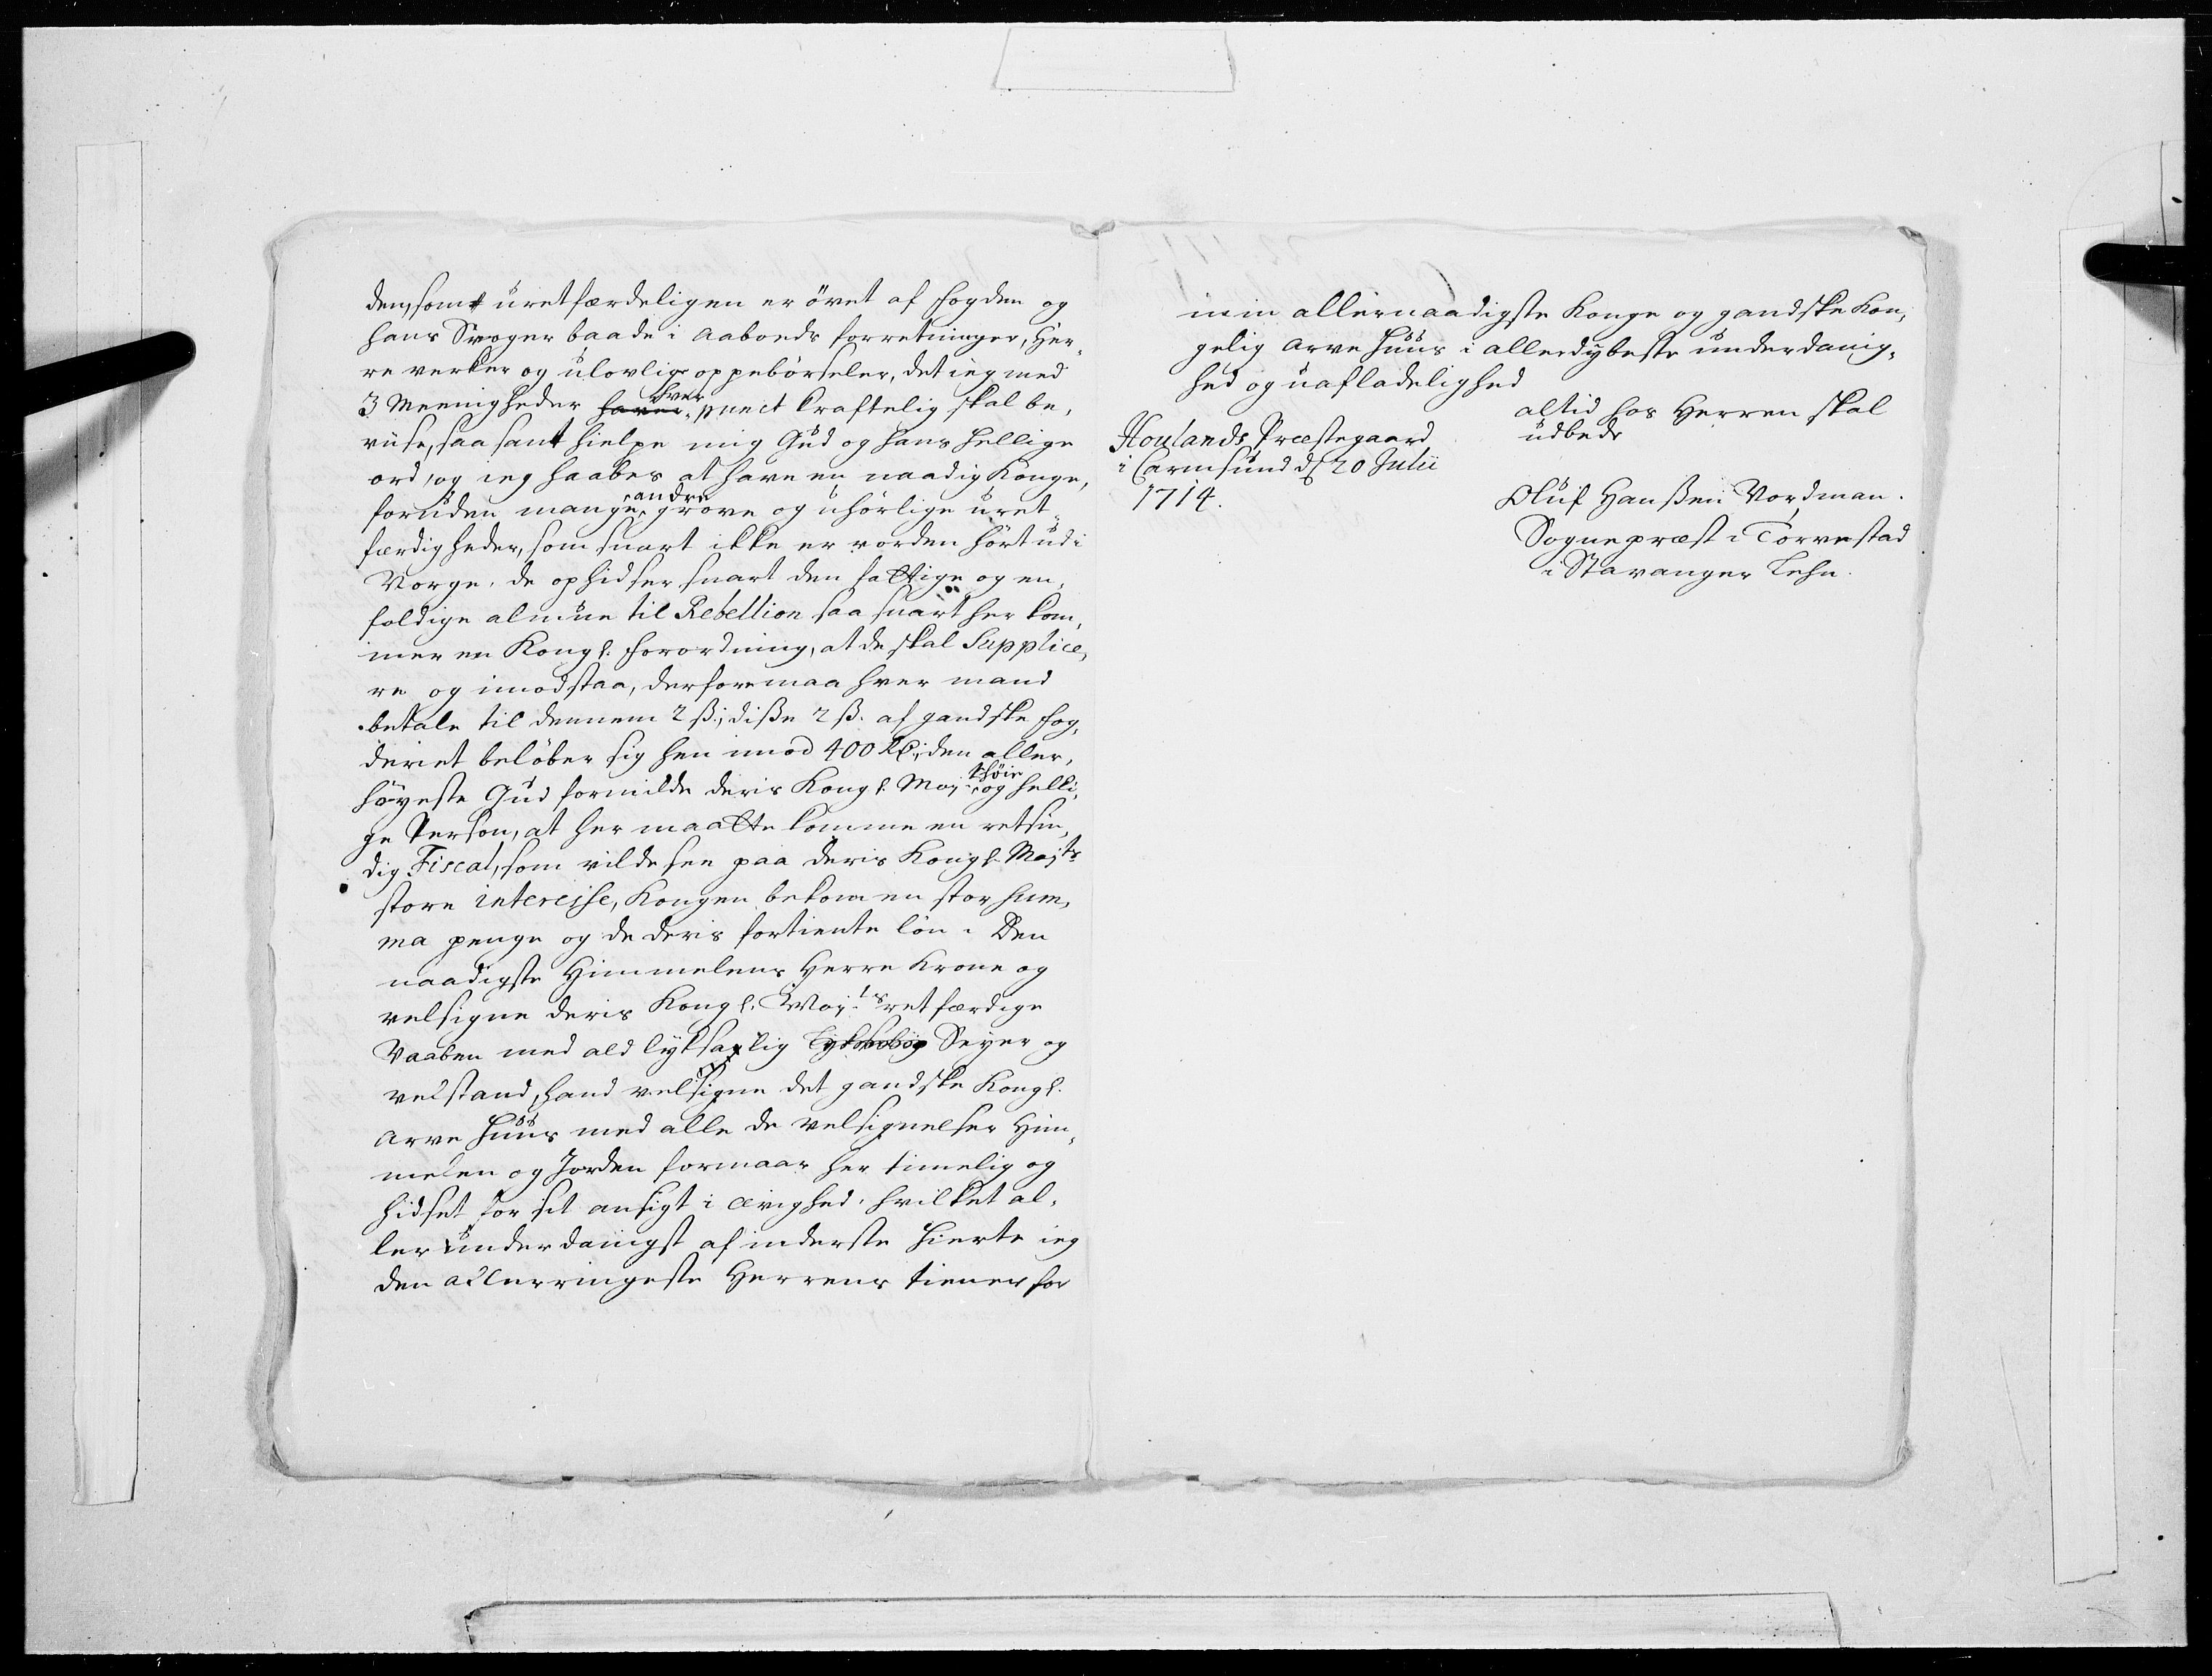 den, som uretfærdeligen er övet af fogden og
hans Svoger baade i aaboeds forretninger, Her¬
re verker og ulovlige oppebörseler, det ieg med
3 Meenigheder hver punct kraftelig skal be¬
viise, saa sant hielpe mig Gud og hans hellige
ord, og ieg haabes at have en naadig Konge,
foruden mange andre grove og uhörlige uret¬
færdigheder, som snart ikke er vorden hört ud i
Norge. de ophidser snart den fattige og en¬
foldige almue til Rebellion saa snart her kom¬
mer en Kongl. forordning, at de skal Supplice¬
re og imodstaa, derfore maa hver mand
betale til dennem 2 ß; diße 2 ß. af gandske fog¬
deriet belöber sig hen imod 400 Rd; den aller¬
höyeste Gud formilde deris Kongl. Mayts höie og helli¬
ge Person, at her maatte komme en retsin¬
dig Fiscal, som vilde see paa deris Kongl. Majts
store interesse, Kongen bekom en stor sum¬
ma penge og de deris fortiente lön. Den
naadigste Himmelens Herre krone og
velsigne deris Kongl. Mayts retfærdige
Vaaben med ald lyksalig Seyer og
velstand, hand velsigne det gandske Kongl.
arve Huus med alle de velsignelser Him¬
melen og Jorden formaar her timelig og
hidset for sit ansigt i ævighed. hvilket al¬
ler underdanigst af inderste hierte ieg
den allerringeste Herrens tiener for
min allernaadigste Konge og gandske Kon¬
gelig arve Huus i allerdybeste underdanig¬
hed og uafladelighed
altid hos Herren skal
udbede
Houlands Præstegaard
i Carmsund d 20 Julii
1714.
Oluf Hanßen Nordman.
Sognepræst i Torvestad
i Stavanger Lehn.